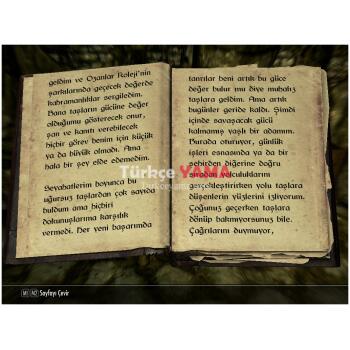 geldim ve Ozanlar Koleji'nin
şarkılarında geçecek değerde
kahramanlıklar sergiledim.
Bana taşların gücüne değer
olduğumu gösterecek onur,
şan ve kanıtı verebilecek
hiçbir görev benim için küçük
ya da büyük olmadı. Ama
hala bir şey elde edemedim.
Seyahatlerim boyunca bu
uğursuz taşlardan çok sayıda
buldum ama hiçbiri
dokunuşlarıma karşılık
vermedi. Her yeni başarımda
tanrılar beni artık bu güce
değer bulur mu diye muhatız
taşlara geldim. Ama artık
bugünler geride kaldı. Şimdi
içinde savaşacak gücü
kalmamış yaşlı bir adamım.
Burada oturuyor, günlük
işleri esnasında ya da bir
şehirden diğerine doğru
sıradan yolculuklarını
gerçekleştirirken yolu taşlara
düşenlerin yüzlerini izliyorum.
Çoğunuz geçerken taşlara
dönüp bakmıyorsunuz bile.
Çağrılarını duymuyor,
Türkçe YAMA
Sayfayı Çevir